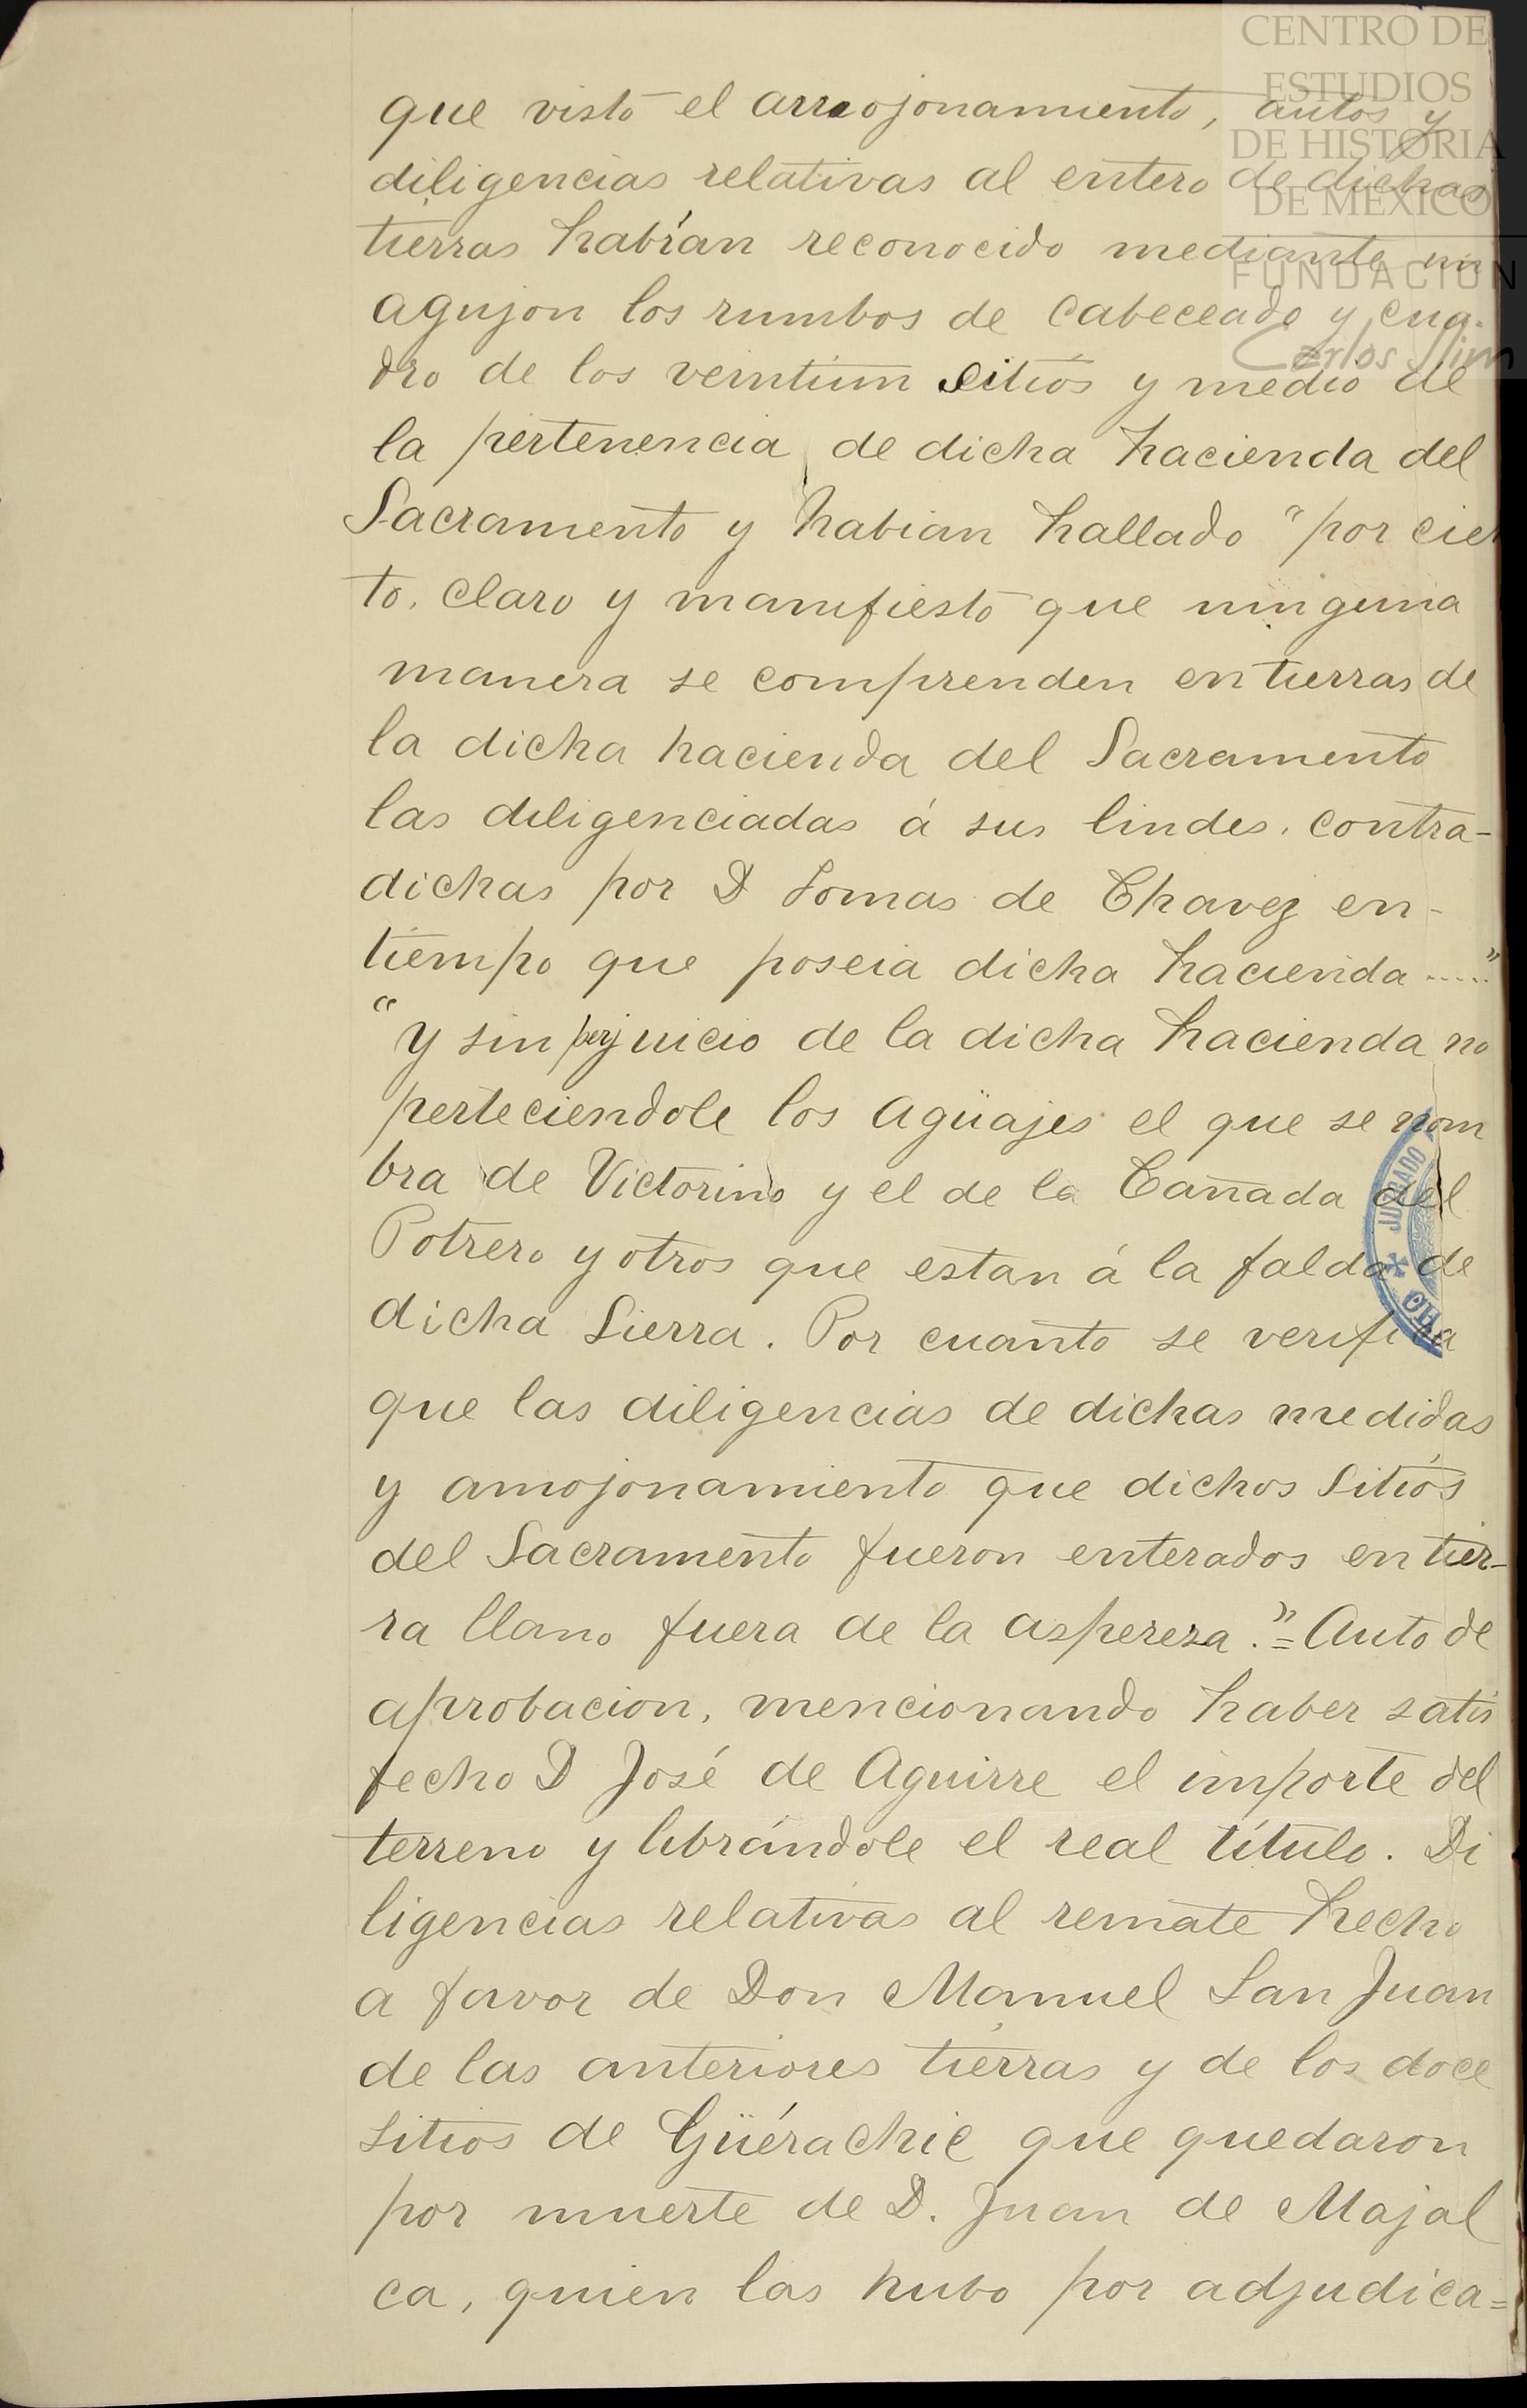 CENTRO DE
ESTUDIOS
DE HISTORIA
DE MÉXICO
FUNDACIÓN
Carlos Slim
que visto el arroojonamiento, autos y
diligencias relativas al entero de dichas
tierras habían reconocido mediante un
agujon los rumbos de cabeceado y cua-
dro de los veintiun sitios y medio de
la pertenencia de dicha hacienda del
Sacramento y habian hallado "por cier
to, claro y manifiesto que ninguna
manera se comprenden en tierras de
la dicha hacienda del Sacramento
las diligenciadas á sus lindes, contra-
dichas por D Tomas de Chavez en-
tiempo que poseia dicha hacienda ....."
"y sin perjuicio de la dicha hacienda no
perteciendole los agüajes el que se nom
bra de Victorino y el de la Cañada del
Potrero y otros que estan á la falda de
dicha Sierra. Por cuanto se verifica
que las diligencias de dichas medidas
y amojonamiento que dichos Sitios
del Sacramento fueron enterados en tier-
ra llano fuera de la aspereza."= Auto de
aprobacion, mencionando haber satis
fecho D José de Aguirre el importe del
terreno y librándole el real título. Di
ligencias relativas al remate hecho
a favor de Don Manuel San Juan
de las anteriores tierras y de los doce
sitios de Güérachic que quedaron
por muerte de D. Juan de Majal
ca, quien las hubo por adjudica=
JUZGADO
CHI